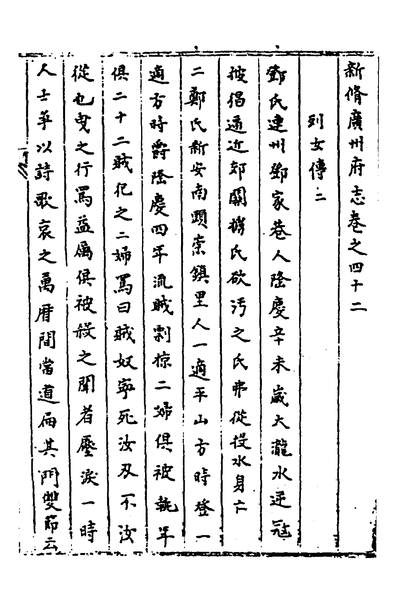 新脩廣州府志卷之四十二
列女傳二
鄧氏連州鄧家巷人隆慶辛未歲大瀧水逆寇
披倡逼近郊關擄氏欲汚之氏弗從投水身亡
二鄭氏新安南頭崇鎮里人一適平山方時登一
適方時爵隆慶四年流賊剽掠二婦俱被執年
俱二十二賊犯之二婦罵曰賊奴寧死汝刃不汝
從也曳之行罵益厲俱被殺之聞者墮淚一時
人士爭以詩歌哀之萬曆間當道扁其門雙節云